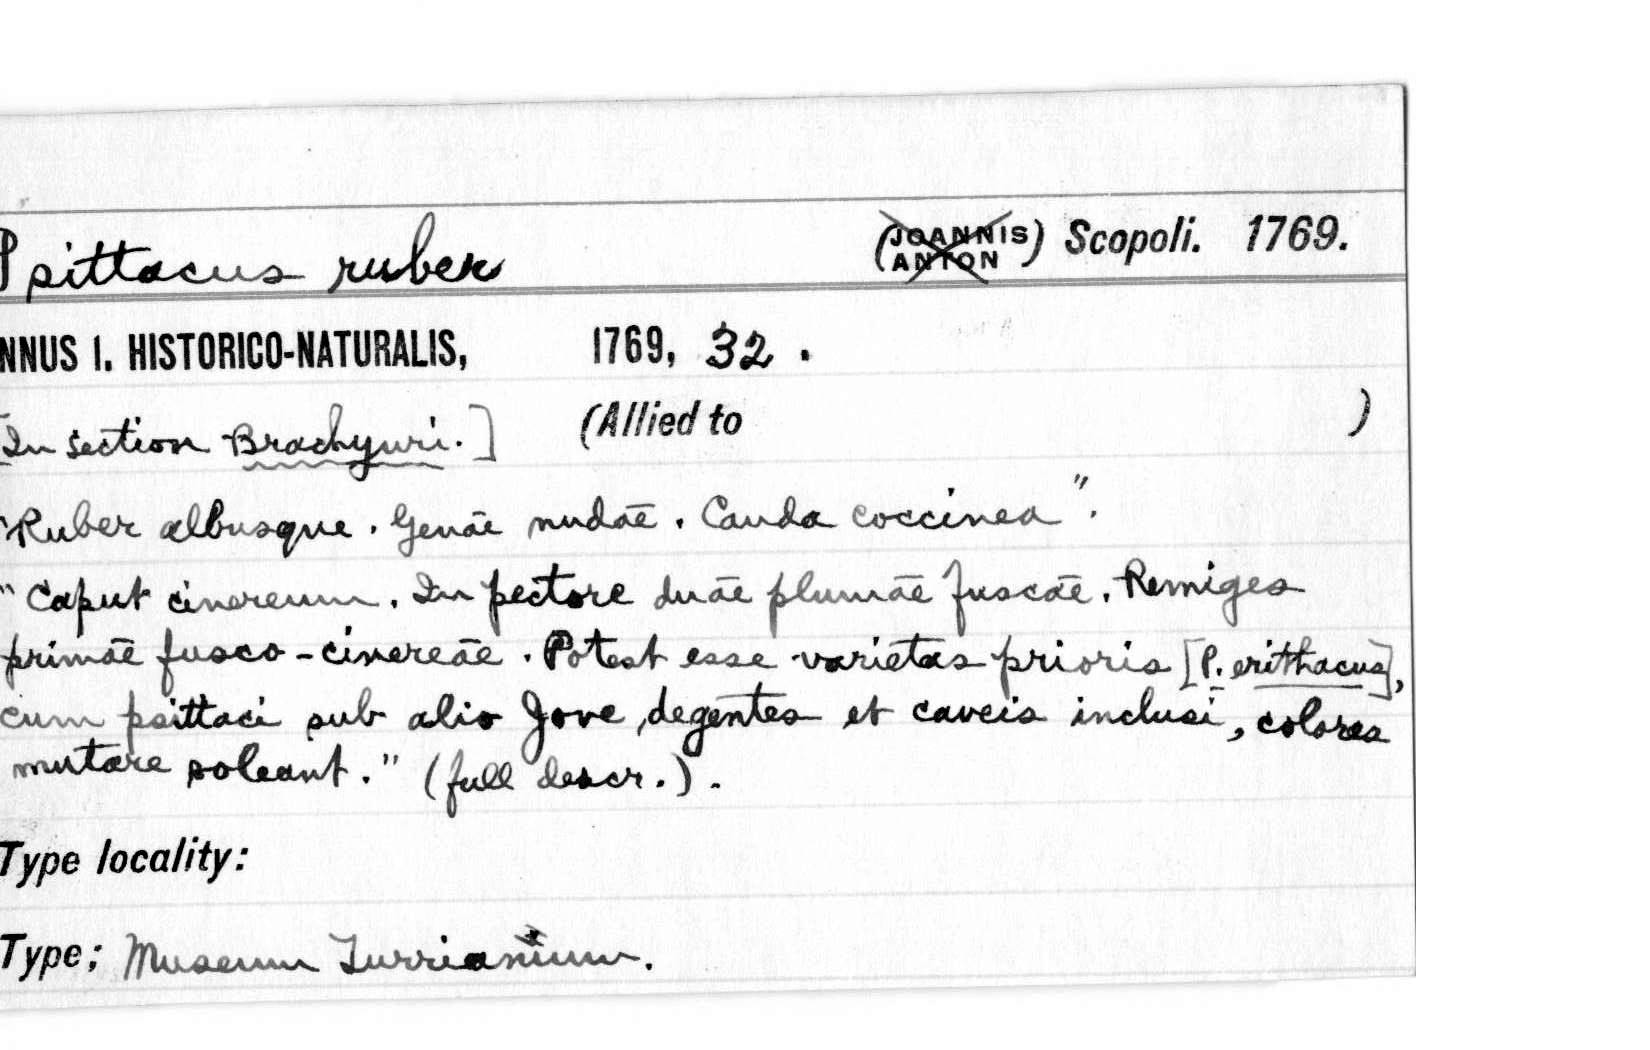 Psittacus ruber (JOANNIS ANTON) Scopoli. 1769.
NNUS I. HISTORICO-NATURALIS, 1769, 32.
[In section Brachyuri.] (Allied to )
"Ruber albusque. Genāe nudāe. Cauda coccinea".
"Caput cinereum. In pectore duāe plumāe fuscāe. Remiges
primāe fusco-cinereāe. Potest esse varietas prioris [P. erithacus],
cum psittaci sub alio Jove degentes et caveis inclusi, colores
mutare soleant." (full descr.).
Type locality:
Type; Museum Turrianum.